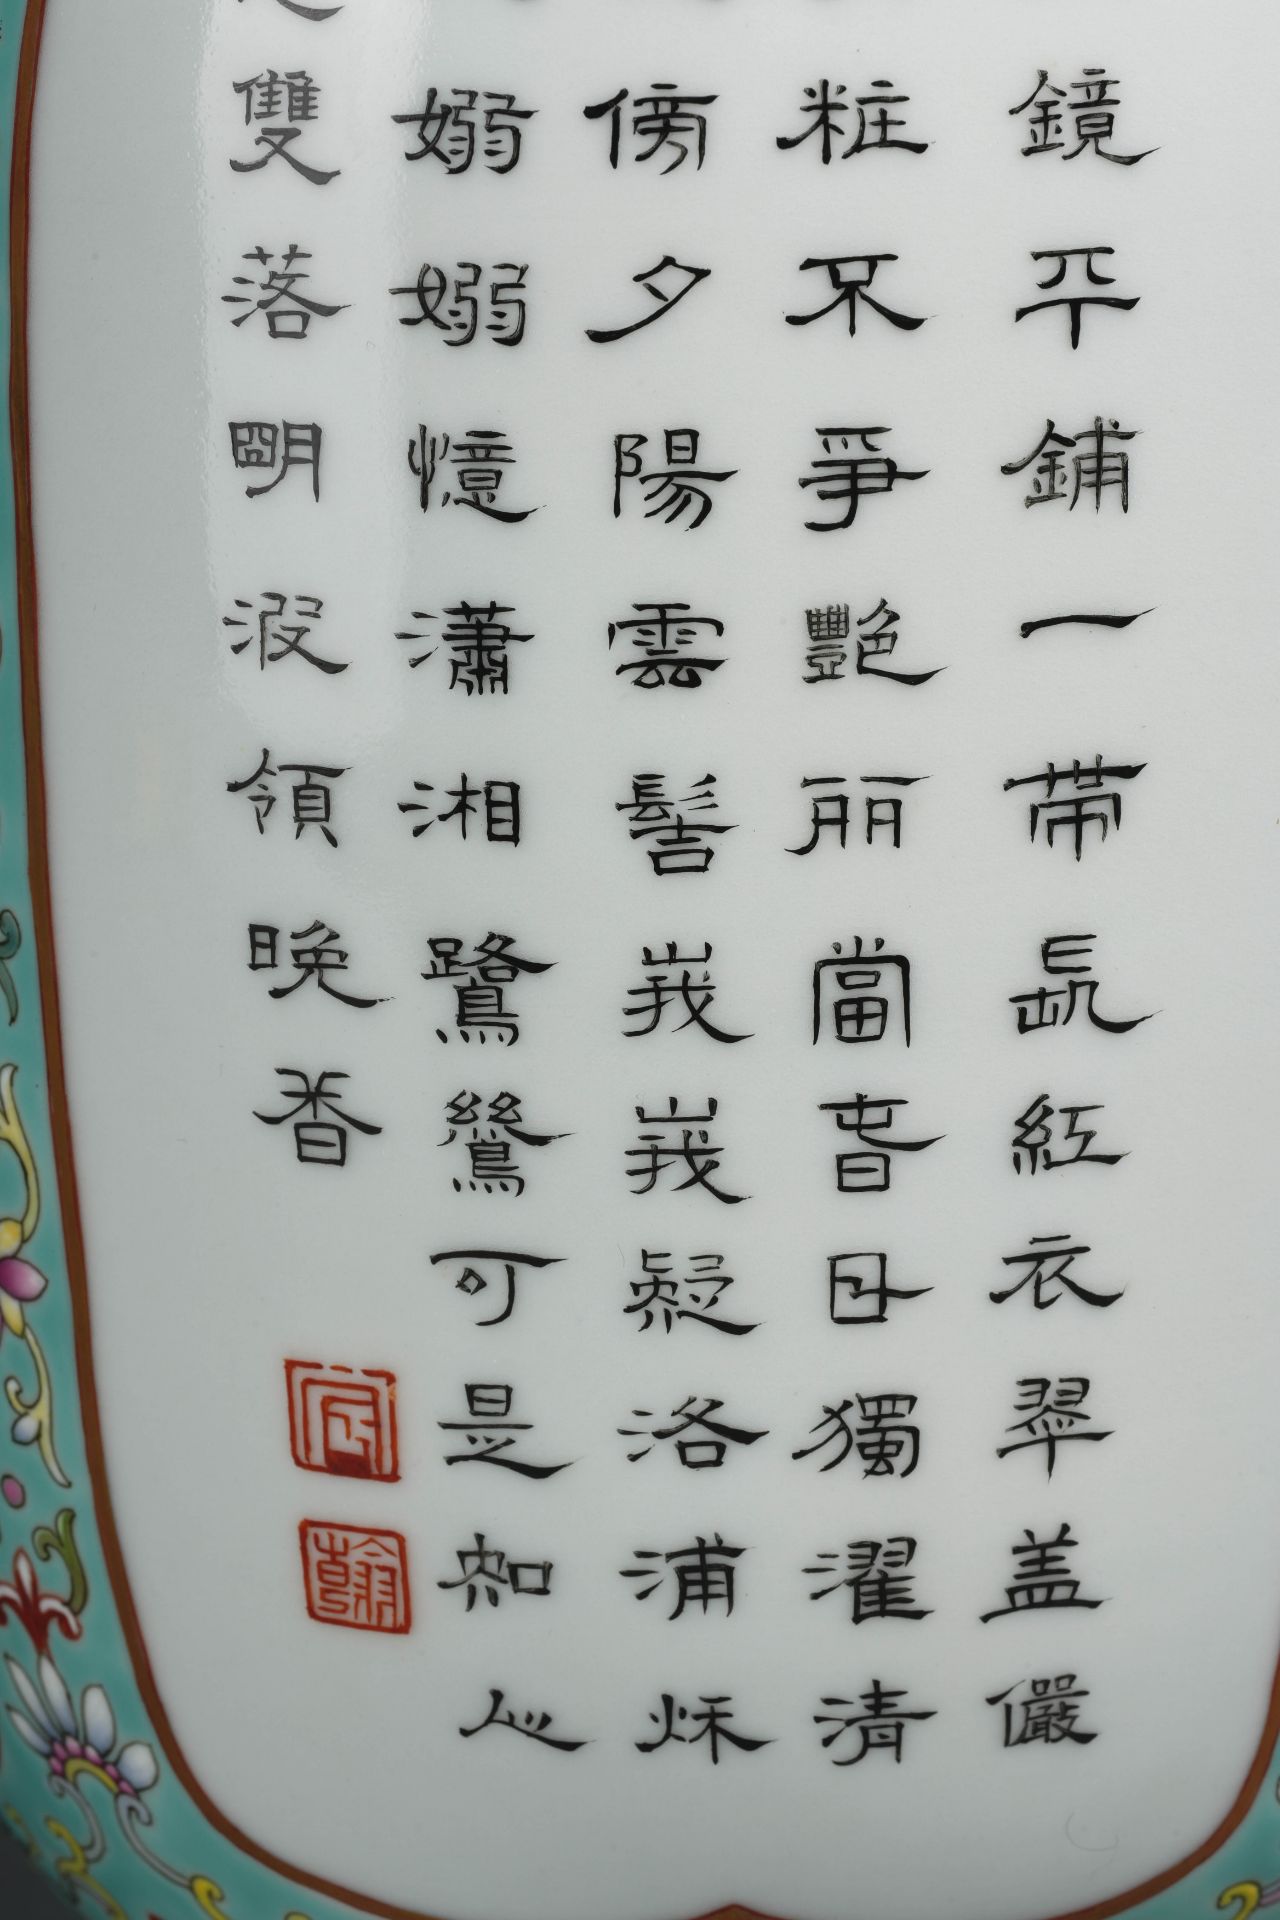 鏡平鋪一帶長紅衣翠盖儼
粧不爭艷丽當春日獨濯清
傍夕陽雲髻峩峩疑洛浦秌
嫋嫋憶瀟湘鷺鷥可是知心
雙落明波領晚香
宸
翰